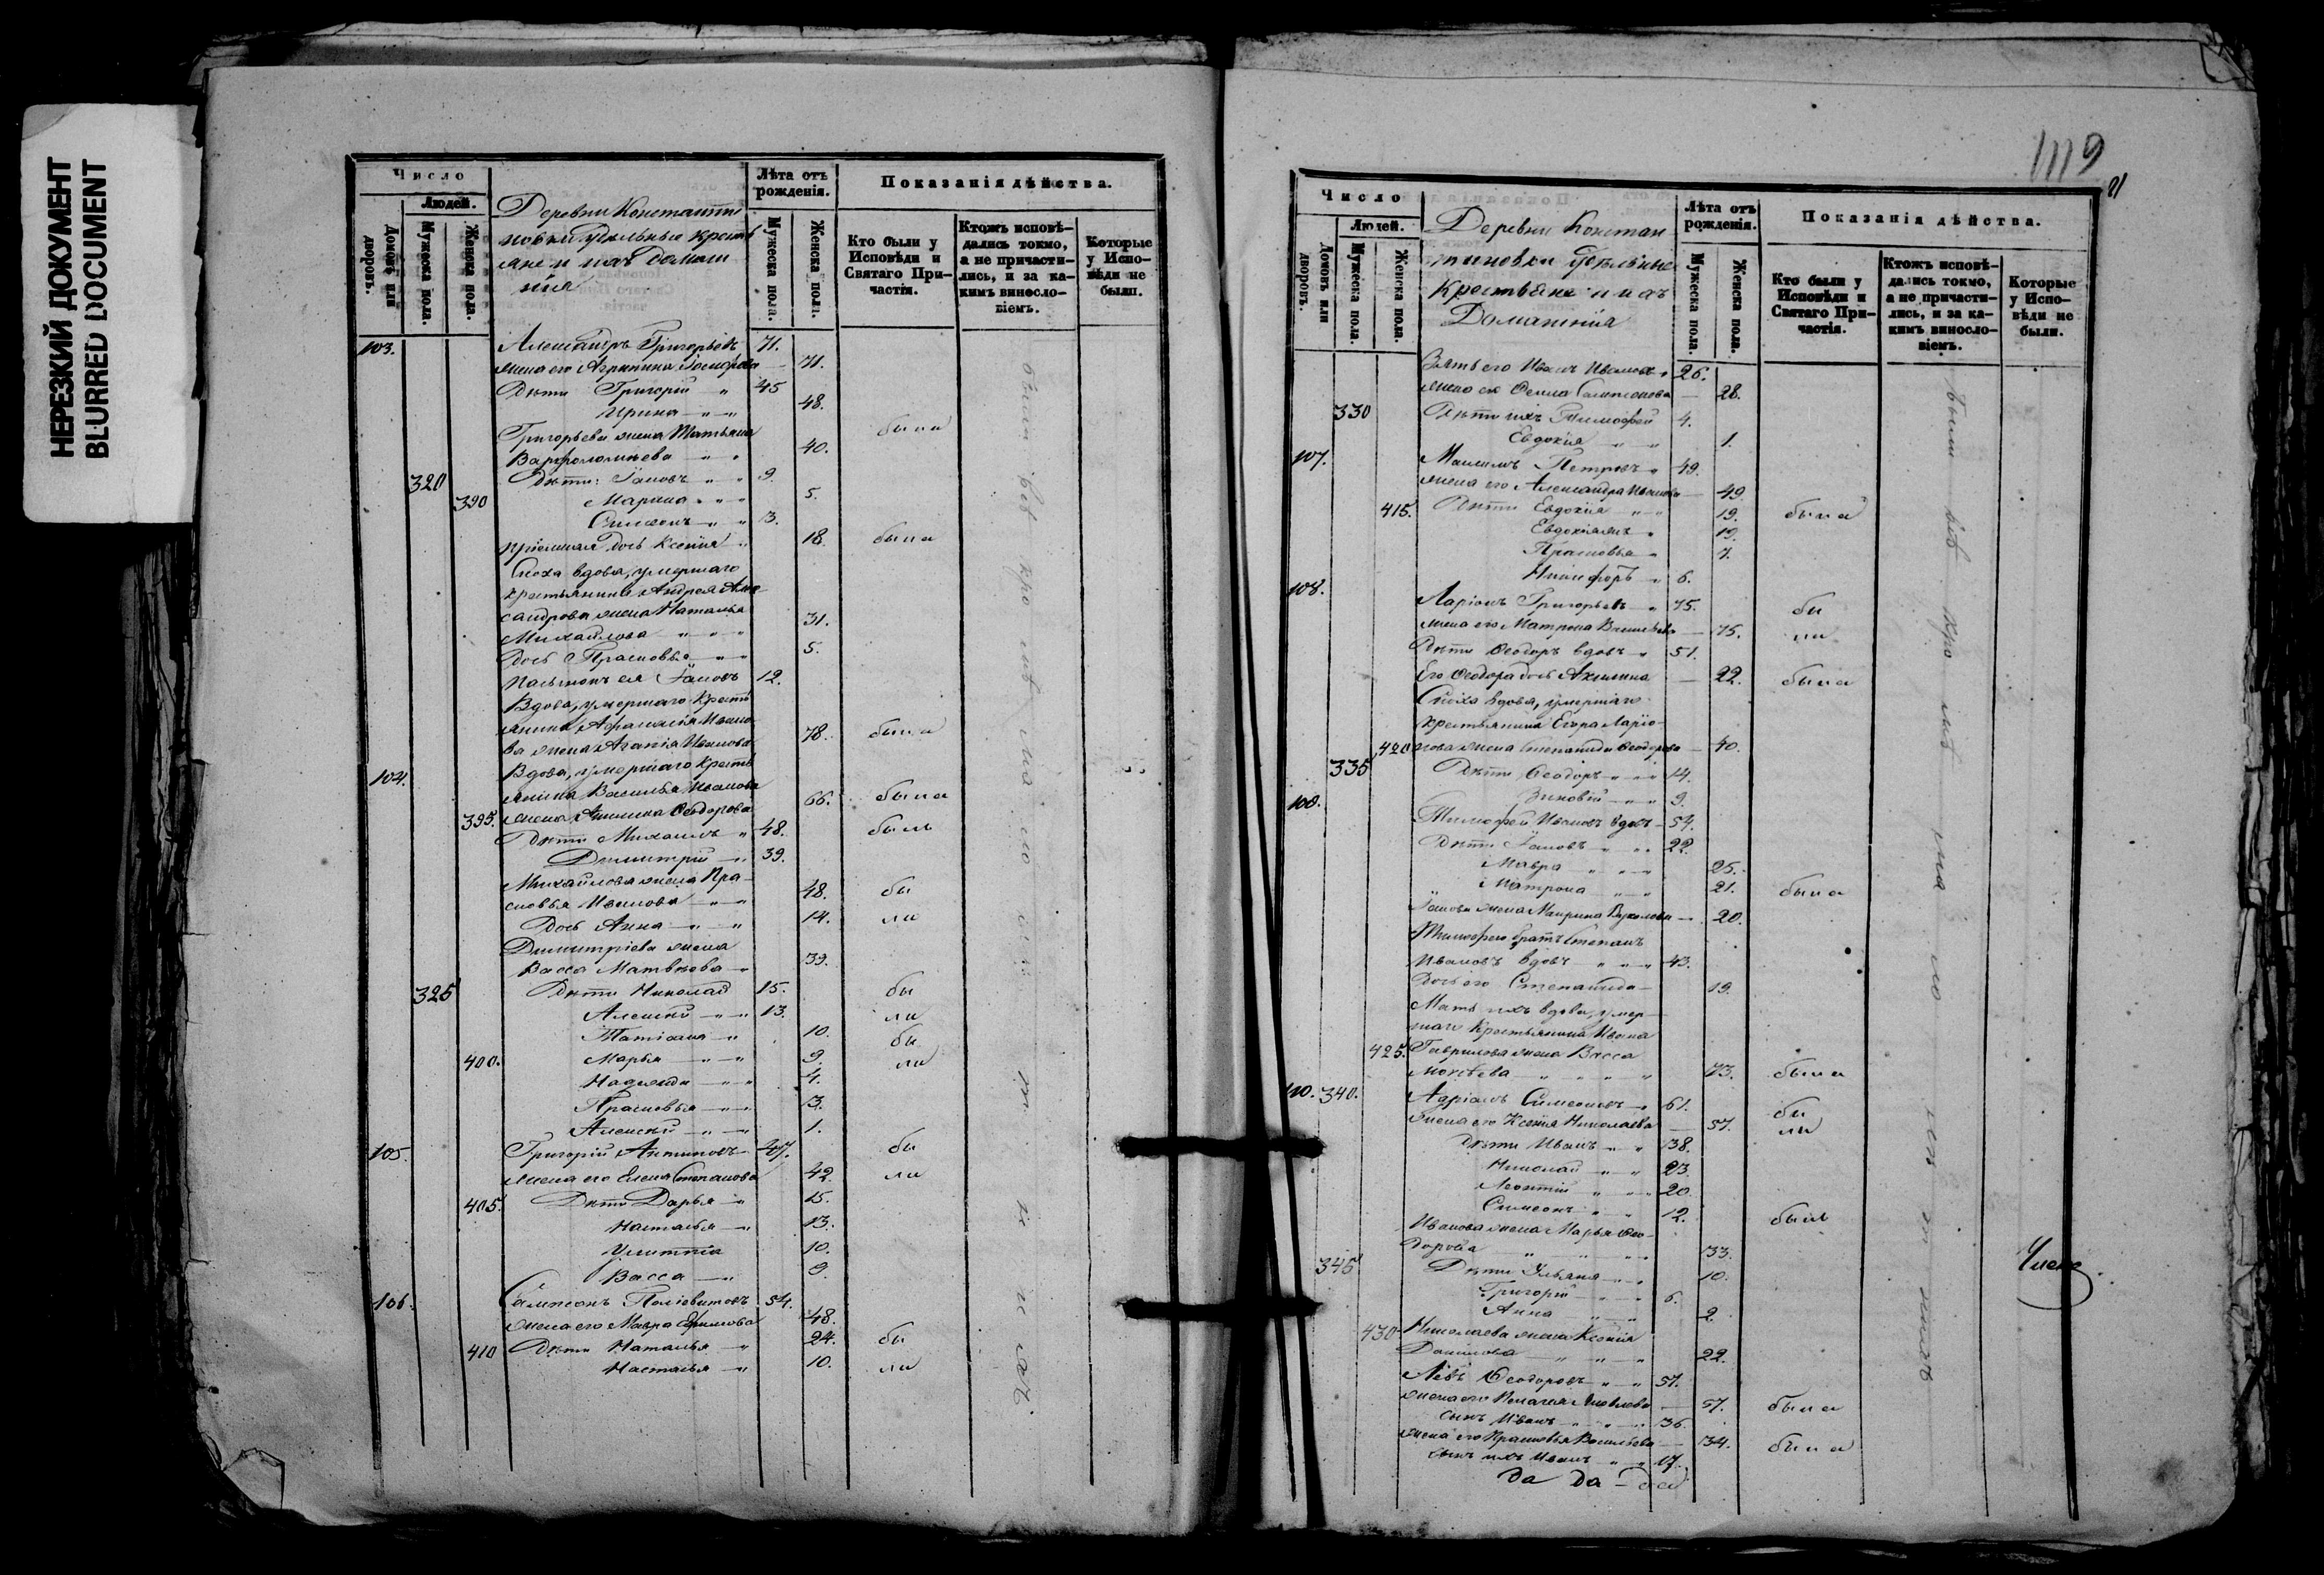 НЕРЕЗКИЙ ДОКУМЕНТ
BLURRED DOCUMENT
Число
Людей.
Домовъ или дворовъ.
Мужеска пола.
Женска пола.
Деревни Констант
новки Удѣльные крестья
яне и ихъ домаш
нія
Лѣта отъ рожденія.
Мужеска пола.
Женска пола.
Показанія дѣйства.
Кто были у Исповѣди и Святаго Причастія.
Ктожъ исповѣдались токмо, а не причастились, и за какимъ винословіемъ.
Которые у Исповѣди не были.
103. Александръ Григорьевъ 71.
жена его Агрипина Іосифова 71.
Дѣти Григорій 45
Ирина 48.
Григорьева жена Татьяна
Варфоломѣева 40. были
320 Дѣти: Іаковъ 9.
390 Марина 5.
Симеонъ 3.
пріемная дочь Ксенія 18. была
Сноха вдова, умершаго
крестьянина Андрея Алек
сандрова жена Наталья
Михайлова 31.
Дочь Прасковья 5.
Іаковъ 12.
Вдова, умершаго кресть
янина Афанасія Ивано
ва жена Агапія Иванова 78. была
104. Вдова, умершаго кресть
янина Василья Иванова
395. жена Акилина Ѳеодорова 66. была
Дѣти Михаилъ 48. былъ
Димитрій 39.
Михайлова жена Пра
сковья Иванова 48. бы
Дочь Анна 14. ли
Димитріева жена
Васса Матвѣева 39.
325 Дѣти Николай 15. бы
Алексѣй 13. ли
Татіана 10. бы
400. Марья 9. ли
Надежда 4.
Прасковья 3.
1.
105. Григорій Антиповъ 47. бы
жена его Елена Степанова 42. ли
405. Дѣти Дарья 15.
Наталья 13.
Улитта 10.
Васса 9.
106. Сампсонъ 54.
жена его Мавра Ефимова 48.
410 Дѣти Наталья 24. бы
Настасья 10. ли
1119
Число
Людей.
Домовъ или дворовъ.
Мужеска пола.
Женска пола.
Деревни Констан
тиновки Удѣльные
крестьяне и ихъ
Домашнія
Лѣта отъ рожденія.
Мужеска пола.
Женска пола.
Показанія дѣйства.
Кто были у Исповѣди и Святаго Причастія.
Ктожъ исповѣдались токмо, а не причастились, и за какимъ винословіемъ.
Которые у Исповѣди не были.
Зять его Иванъ Ивановъ 26.
жена его Ѳекла Сампсонова 28.
330 Дѣти ихъ Тимоѳей 4.
Евдокія 1.
107. Максимъ Петровъ 49.
жена его Александра Иванова 49.
415. Дѣти Евдокія 19. была
19.
Прасковья 7.
Никифоръ 6.
108. Ларіонъ Григорьевъ 75. бы
жена его Матрона Васильева 75. ли
Дѣти Ѳеодоръ вдовъ 51.
Его Ѳеодора дочь Акилина 22. была
Сноха вдова, умершаго
крестьянина Егора Ларіо
420 нова жена Степанида Ѳеодорова 40.
335 Дѣти Ѳеодоръ 14.
Зиновій 9.
109. Тимоѳей Ивановъ вдовъ 54.
Дѣти Іаковъ 22.
Мавра 25.
Матрона 21. была
Іакова жена Марина 20.
Тимоѳея братъ Степанъ
Ивановъ вдовъ 43.
Дочь его Степанида 19.
Мать ихъ вдова, умер
шаго крестьянина Ивана
425. Гаврилова жена Васса
Мокѣева 73. была
110. 340. Адріанъ Симеоновъ 61. бы
жена его Ксенія Николаева 57. ли
Дѣти Иванъ 38.
Николай 23.
Леонтій 20.
Симеонъ 12. былъ
Иванова жена Марья Ѳео
дорова 33.
345 Дѣти Ульяна 10.
Григорій 6.
Анна 2
430 Николаева жена Ксенія
Данилова 22.
Левъ Ѳеодоровъ 57.
жена его Пелагея Яковлева 57. была
сынъ Иванъ 36.
жена его Прасковья Васильева 34. была
сынъ ихъ Иванъ 17.